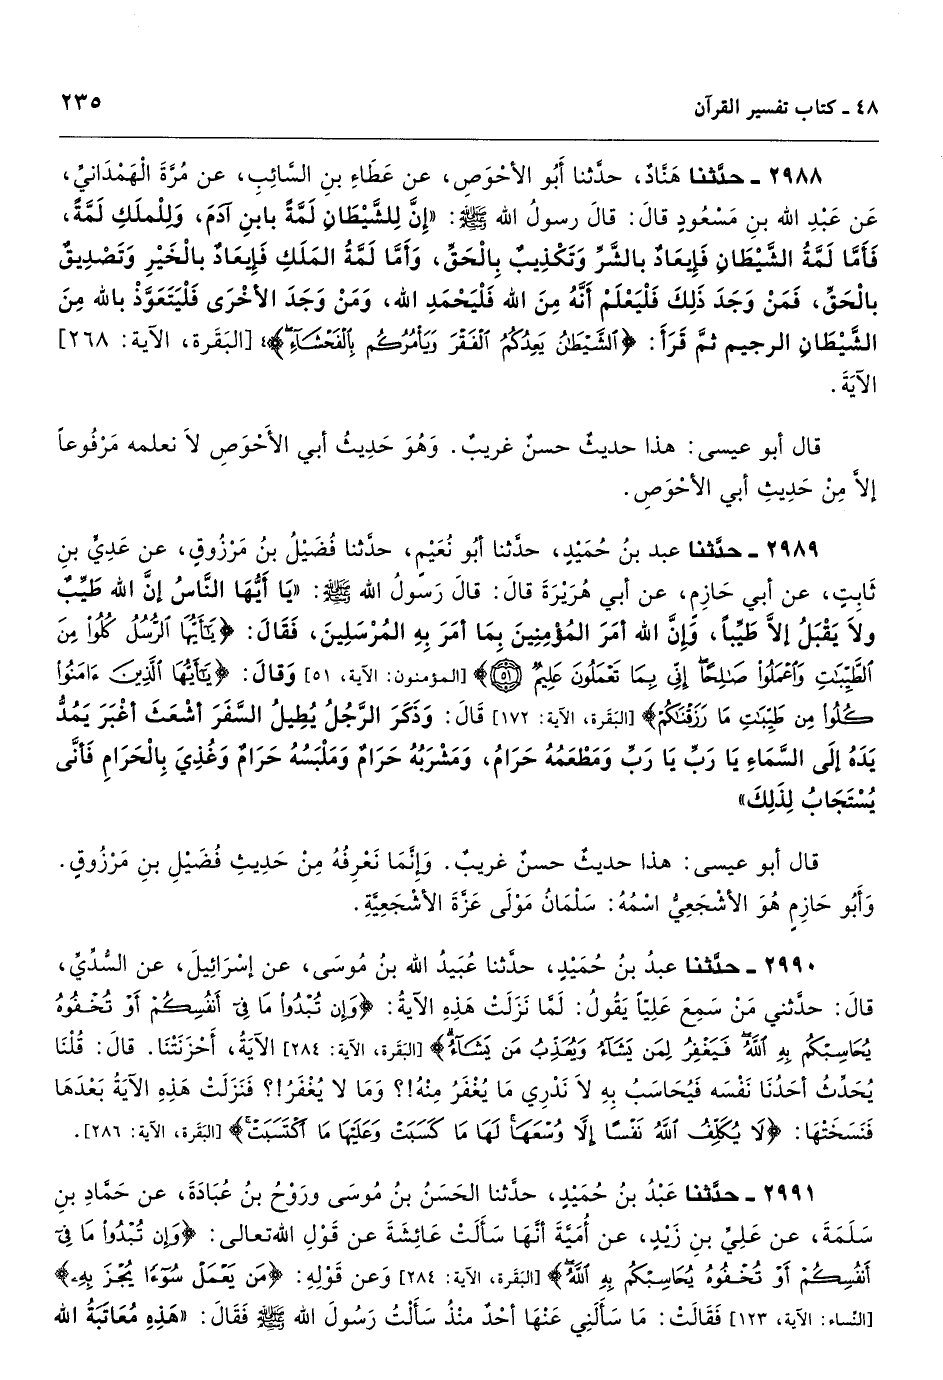 ٤٨ ـ كتاب تفسير القرآن
٢٣٥
٢٩٨٨ ـ حدَّثنا هَنَّادٌ، حدَّثنا أَبُو الأحْوَصِ، عن عَطَاءِ بنِ السَّائِبِ، عن مُرَّةَ الْهَمْدَانيِّ،
عَن عَبْدِ الله بنِ مَسْعُودٍ قالَ: قالَ رسولُ الله ﷺ: «إنَّ لِلشَّيْطَانِ لَمَّةً بابنِ آدَمَ، وَلِلْملَكِ لَمَّةً،
فَأمَّا لَمَّةُ الشَّيْطَانِ فَإيعَادٌ بالشَّرِّ وَتَكْذِيبٌ بِالْحَقِّ، وَأَمَّا لَمَّةُ المَلَكِ فَإيعَادٌ بالْخَيْرِ وَتَصْدِيقٌ
بالْحَقِّ، فَمَنْ وَجَدَ ذَلِكَ فَلْيَعْلَمْ أَنَّهُ مِنَ الله فَلْيَحْمَدِ الله، وَمَنْ وَجَدَ الأخْرَى فَلْيَتَعَوَّذْ بالله مِنَ
الشَّيْطَانِ الرجيم ثمَّ قَرَأَ: ﴿ٱلشَّيْطَانُ يَعِدُكُمُ ٱلْفَقْرَ وَيَأْمُرُكُم بِٱلْفَحْشَآءِ﴾» [البَقَرة، الآية: ٢٦٨]
الآيَةَ.
قال أبو عيسى: هذا حديثٌ حسنٌ غريبٌ. وَهُوَ حَدِيثُ أبي الأَحْوَصِ لاَ نعلمه مَرْفُوعاً
إلاَّ مِنْ حَدِيثِ أبي الأحْوَصِ.
٢٩٨٩ ـ حدَّثنا عبد بنُ حُمَيْدٍ، حدَّثنا أبُو نُعَيْمٍ، حدَّثنا فُضَيْلُ بنُ مَرْزُوقٍ، عن عَدِيِّ بنِ
ثَابِتٍ، عن أبي حَازِمٍ، عن أبي هُرَيْرَةَ قالَ: قالَ رَسولُ الله ﷺ: «يَا أَيُّهَا النَّاسُ إنَّ الله طَيِّبٌ
ولاَ يَقْبَلُ إلاَّ طَيِّباً، وَإنَّ الله أمَرَ المُؤْمِنِينَ بِمَا أمَرَ بِهِ المُرْسَلِينَ، فَقَالَ: ﴿يَٰٓأَيُّهَا ٱلرُّسُلُ كُلُوا۟ مِنَ
ٱلطَّيِّبَٰتِ وَٱعْمَلُوا۟ صَٰلِحًا إِنِّى بِمَا تَعْمَلُونَ عَلِيمٌ ﴿٥١﴾﴾ [المؤمنون: الآية، ٥١] وَقالَ: ﴿يَٰٓأَيُّهَا ٱلَّذِينَ ءَامَنُوا۟
كُلُوا۟ مِن طَيِّبَٰتِ مَا رَزَقْنَٰكُمْ﴾ [البَقَرة، الآية: ١٧٢] قَالَ: وَذَكَرَ الرَّجُلُ يُطِيلُ السَّفَرَ أشْعَثَ أغْبَرَ يَمُدُّ
يَدَهُ إلَى السَّمَاءِ يَا رَبِّ يَا رَبِّ وَمَطْعَمُهُ حَرَامٌ، وَمَشْرَبُهُ حَرَامٌ وَمَلْبَسُهُ حَرَامٌ وَغُذِيَ بِالْحَرَامِ فَأنَّى
يُسْتَجَابُ لِذَلِكَ»
قال أبو عيسى: هذا حديثٌ حسنٌ غريبٌ. وَإنَّمَا نَعْرِفُهُ مِنْ حَدِيثِ فُضَيْلِ بنِ مَرْزُوقٍ.
وَأَبُو حَازِمٍ هُوَ الأشْجَعِيُّ اسْمُهُ: سَلْمَانُ مَوْلَى عَزَّةَ الأشْجَعِيَّةِ.
٢٩٩٠ ـ حدَّثنا عبدُ بنُ حُمَيْدٍ، حدَّثنا عُبَيدُ الله بنُ مُوسَى، عن إسْرَائِيلَ، عن السُّدِّيِّ،
قالَ: حدَّثني مَنْ سَمِعَ عَلِيّاً يَقُولُ: لَمَّا نَزَلَتْ هَذِهِ الآيةُ: ﴿وَإِن تُبْدُوا۟ مَا فِىٓ أَنفُسِكُمْ أَوْ تُخْفُوهُ
يُحَاسِبْكُم بِهِ ٱللَّهُ فَيَغْفِرُ لِمَن يَشَآءُ وَيُعَذِّبُ مَن يَشَآءُ﴾ [البَقَرة، الآية: ٢٨٤] الآيةُ، أحْزَنَتْنَا. قالَ: قُلْنَا
يُحَدِّثُ أحَدُنَا نَفْسَه فَيُحَاسَبُ بِهِ لاَ نَدْرِي مَا يُغْفَرُ مِنْهُ!؟ وَمَا لا يُغْفَرُ!؟ فَنَزَلَتْ هَذِهِ الآيةُ بَعْدَهَا
فَنَسَخَتْهَا: ﴿لَا يُكَلِّفُ ٱللَّهُ نَفْسًا إِلَّا وُسْعَهَا لَهَا مَا كَسَبَتْ وَعَلَيْهَا مَا ٱكْتَسَبَتْ﴾ [البَقَرة، الآية: ٢٨٦].
٢٩٩١ ـ حدَّثنا عَبْدُ بنُ حُمَيْدٍ، حدَّثنا الحَسَنُ بنُ مُوسَى ورَوْحُ بنُ عُبَادَةَ، عن حَمَّادِ بنِ
سَلَمَةَ، عن عَلِيِّ بنِ زَيْدٍ، عن أُمَيَّةَ أنَّهَا سَأَلَتْ عَائِشَةَ عن قَوْلِ الله تعالى: ﴿وَإِن تُبْدُوا۟ مَا فِىٓ
أَنفُسِكُمْ أَوْ تُخْفُوهُ يُحَاسِبْكُم بِهِ ٱللَّهُ﴾ [البَقَرة، الآية: ٢٨٤] وَعن قَوْلِهِ: ﴿مَن يَعْمَلْ سُوٓءًا يُجْزَ بِهِۦ﴾
[النِّساء: الآية، ١٢٣] فَقَالَتْ: مَا سَأَلَنِي عَنْهَا أحَدٌ منْذُ سَأَلْتُ رَسُولَ الله ﷺ فَقَالَ: «هَذِهِ مُعَاتَبَةُ الله